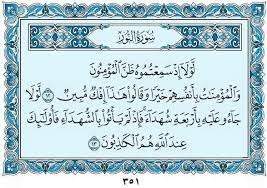 سورة النور
لَوْلَا إِذْ سَمِعْتُمُوهُ ظَنَّ الْمُؤْمِنُونَ
وَالْمُؤْمِنَاتُ بِأَنفُسِهِمْ خَيْرًا وَقَالُوا هَذَا إِفْكٌ مُّبِينٌ ١٢ لَوْلَا
جَاءُو عَلَيْهِ بِأَرْبَعَةِ شُهَدَاءَ فَإِذْ لَمْ يَأْتُوا بِالشُّهَدَاءِ فَأُولَئِكَ
عِندَ اللَّهِ هُمُ الْكَاذِبُونَ ١٣
٣٥١